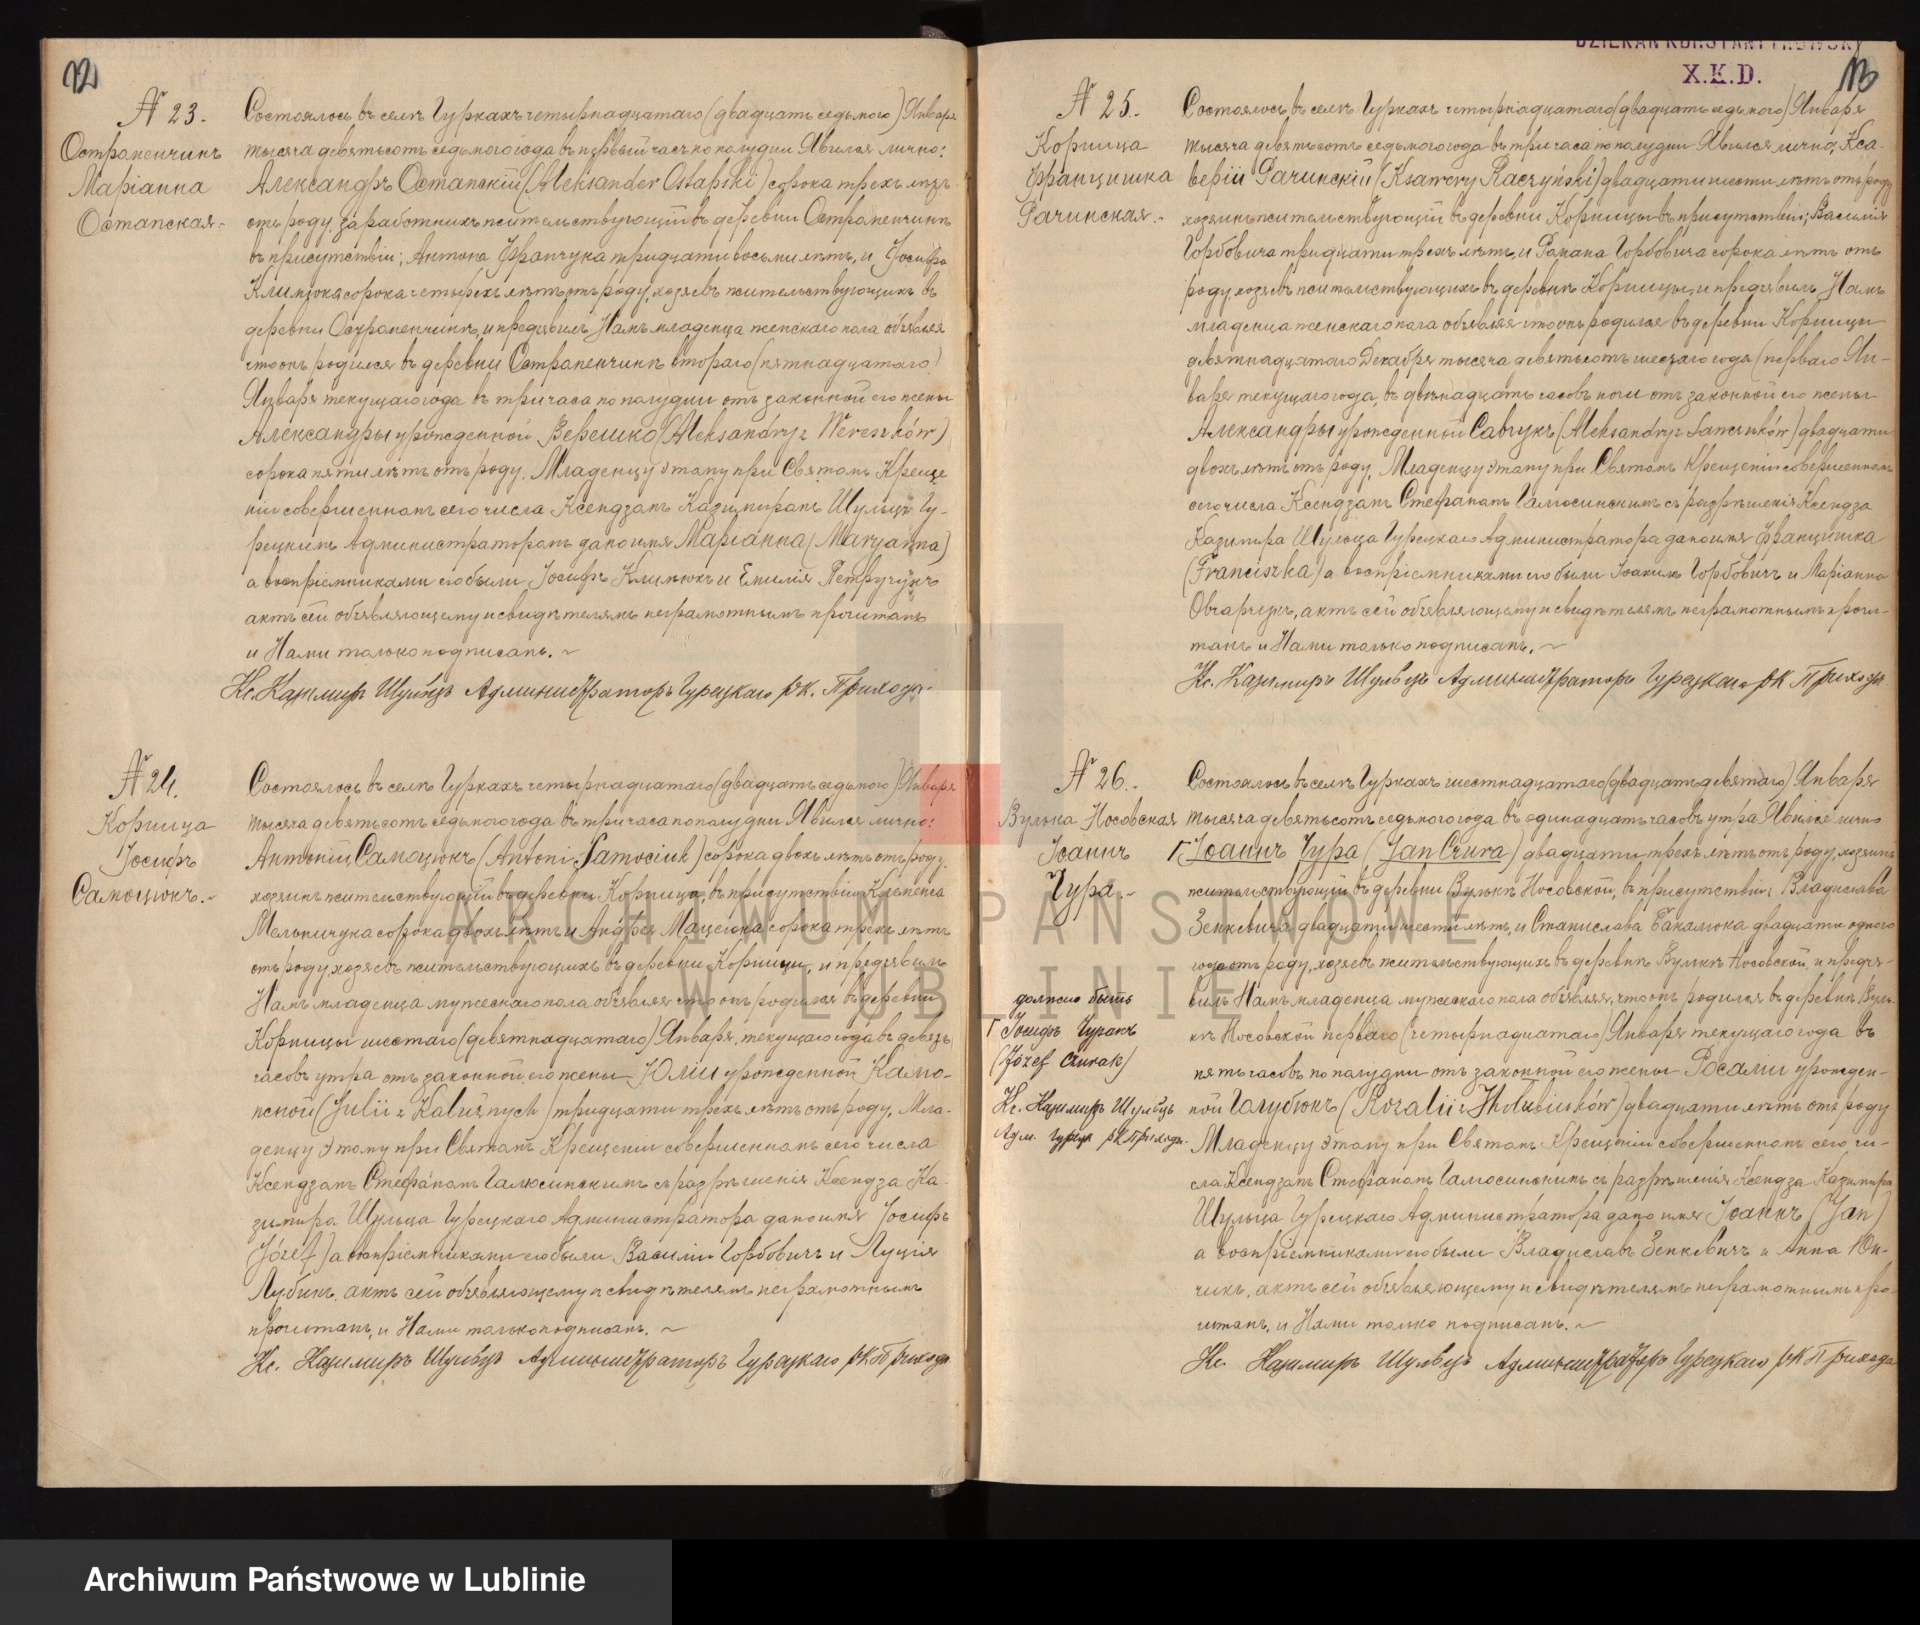 12
№ 23.
Остромечинъ
Маріанна
Остапская.
Состоялось въ селѣ Гуркахъ четырнадцатаго (двадцать седьмого) Января
тысяча девятьсотъ седьмого года въ первый часъ по полудни. Явился лично:
Александръ Остапскій (Aleksander Ostapski) сорока трехъ лѣтъ
отъ роду, заработникъ жительствующій въ деревни
въ присутствіи; Антона Франчука тридцати восьми лѣтъ, и Іосифа
Климюка сорока четырехъ лѣтъ отъ роду, хозяевъ жительствующихъ въ
деревни и предъявилъ Намъ младенца женскаго пола объявляя
что онъ родился въ деревни второго (пятнадцатаго)
Января текущаго года въ три часа по полудни отъ законной его жены
Александры урожденной Верешко (Aleksandry z Wereszków)
сорока пяти лѣтъ отъ роду. Младенцу этому при Святомъ Креще
ніи совершенномъ сего числа Ксендзомъ Казимиромъ Шульцъ Гу-
рецкимъ Администраторомъ дано имя Маріанна (Maryanna)
а воспріемниками его были Іосифъ Климюкъ и Емилія Петручукъ
актъ сей объявляющему и свидѣтелямъ неграмотнымъ прочитанъ
и Нами только подписанъ. ~
Кс. Казимиръ Шульцъ Администраторъ Гурецкаго РК. Прихода.
№ 24.
Корница
Іосифъ
Самоцюкъ. ~
Состоялось въ селѣ Гуркахъ четырнадцатаго (двадцать седьмого) Января
тысяча девятьсотъ седьмого года въ три часа по полудни Явился лично:
Антоній Самоцюкъ (Antoni Samociuk) сорока двохъ лѣтъ отъ роду,
хозяинъ жительствующій въ деревни Корница, въ присутствіи; Клеменса
Мельничука сорока двохъ лѣтъ и Андрея Мацеюка сорока трехъ лѣтъ
отъ роду хозяевъ жительствующихъ въ деревни Корницы, и предъявилъ
Намъ младенца мужескаго пола объявляя что онъ родился въ деревни
Корницы шестаго (девятнадцатаго) Января, текущаго года въ девять
часовъ утра отъ законной его жены Юліи урожденной Калю-
жной (Julii z Kaluźnych) тридцати трехъ лѣтъ отъ роду. Мла-
денцу этому при Святомъ Крещеніи совершенномъ сего числа
Ксендзомъ Стефаномъ Галюсинскимъ съ разрѣшенія Ксендза Ка-
зимира Шульца Гурецкаго Администратора дано имя Іосифъ
(Józef) а воспріемниками его были Василій Горбовичъ и Луція
актъ сей объявляющему и свидѣтелямъ неграмотнымъ
прочитанъ, и Нами только подписанъ. ~
Кс. Казимиръ Шульцъ Администраторъ Гурецкаго РК Прихода
X.K.D.
13
№ 25.
Корница
Францишка
Рачинская.
Состоялось въ селѣ Гуркахъ четырнадцатаго (двадцать седьмого) Января
тысяча девятьсотъ седьмого года въ три часа по полудни Явился лично; Кса-
верій Рачинскій (Ksawery Raczyński) двадцати шести лѣтъ отъ роду
хозяинъ жительствующій въ деревни Корницы въ присутствіи; Василія
Горбовича тридцати трехъ лѣтъ, и Романа Горбовича сорока лѣтъ отъ
роду хозяевъ жительствующихъ въ деревнѣ Корницы, и предъявилъ Намъ
младенца женскаго пола объявляя что онъ родился въ деревни Корницы
девятнадцатаго Декабря тысяча девятьсотъ шестаго года (перваго Ян-
варя текущаго года, въ двѣнадцать часовъ ночи отъ законной его жены
Александры урожденной Савчукъ (Aleksandry z Sawczuków) двадцати
двохъ лѣтъ отъ роду. Младенцу этому при Святомъ Крещеніи совершенномъ
сего числа Ксендзомъ Стефаномъ Галюсинскимъ съ разрѣшенія Ксендза
Казимира Шульца Гурецкаго Администратора дано имя Францишка
(Franciszka) а воспріемниками его были Іоакимъ Горбовичъ и Маріанна
Овчарчукъ, актъ сей объявляющему и свидѣтелямъ неграмотнымъ прочи-
танъ и Нами только подписанъ. ~
Кс. Казимиръ Шульцъ Администраторъ Гурецкаго РК Прихода
№ 26.
Вулька Носовская
Іоаннъ
Чура.
должно быть
Г Іосифъ Чуракъ
(Józef Czurak)
Кс. Казимиръ Шульцъ
Адм. Гурецк РК Прихода.
Состоялось въ селѣ Гуркахъ шестнадцатаго (двадцать девятаго) Января
тысяча девятьсотъ седьмого года въ одинадцать часовъ утра Явился лично
Г Іоаннъ Чура (Jan Czura) двадцати трехъ лѣтъ отъ роду, хозяинъ
жительствующій въ деревни Вулькѣ Носовской, въ присутствіи; Владислава
Зенкевича двадцати шести лѣтъ, и Станислава двадцати одного
года отъ роду, хозяевъ жительствующихъ въ деревнѣ Вулькѣ Носовской, и предъя-
вилъ Намъ младенца мужескаго пола объявляя, что онъ родился въ деревнѣ Вуль-
кѣ Носовской перваго (четырнадцатаго) Января текущаго года въ
пять часовъ по полудни отъ законной его жены Росаліи урожден-
ной Голубюкъ (Rozalii z Hołubiuków) двадцати лѣтъ отъ роду
Младенцу этому при Святомъ Крещеніи совершенномъ сего чи-
сла Ксендзомъ Стефаномъ Галюсинскимъ съ разрѣшенія Ксендза Казимира
Шульца Гурецкаго Администратора дано имя Іоаннъ (Jan)
а воспріемниками его были Владиславъ Зенкевичъ и Анна
актъ сей объявляющему и свидѣтелямъ неграмотнымъ про-
читанъ, и Нами только подписанъ. ~
Кс. Казимиръ Шульцъ Администраторъ Гурецкаго РК Прихода
ARCHIWUM PAŃSTWOWE
W LUBLINIE
Archiwum Państwowe w Lublinie